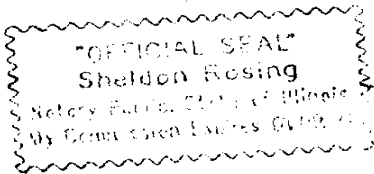 "OFFICIAL SEAL"
Sheldon Rosing
Notary Public, State of Illinois
My Commission Expires